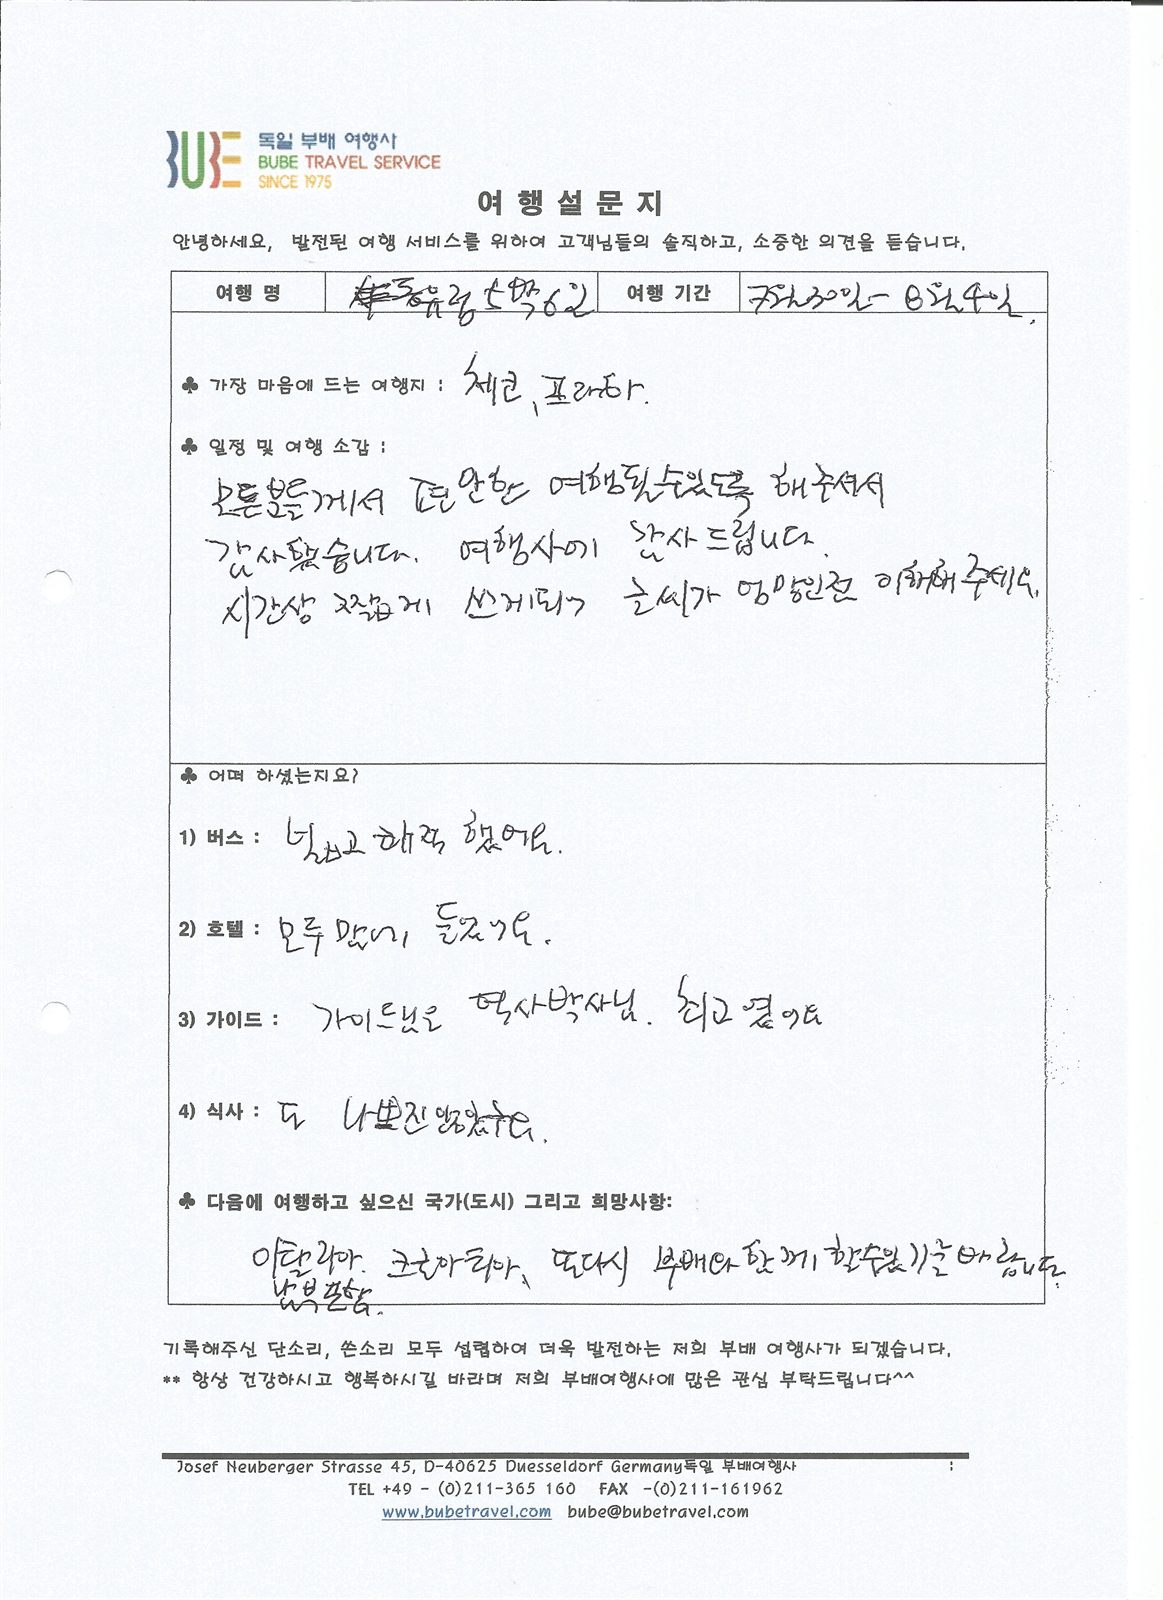 BUBE 독일 부배 여행사
BUBE TRAVEL SERVICE
SINCE 1975
여 행 설 문 지
안녕하세요, 발전된 여행 서비스를 위하여 고객님들의 솔직하고, 소중한 의견을 듣습니다.
여행 명 동유럽 5박6일 여행 기간 7월30일- 8월4일.
♣ 가장 마음에 드는 여행지 : 체코, 프라하.
♣ 일정 및 여행 소감 :
모든분들께서 편안한 여행될수있도록 해주셔서
감사했습니다. 여행사에 감사드립니다.
시간상 쓰게되어 글씨가 엉망인전 이해해주세요.
♣ 어떠 하셨는지요?
1) 버스 : 넓고 쾌적 했어요.
2) 호텔 : 모두 맘에 들었어요.
3) 가이드 : 가이드님은 역사박사님. 최고였어요
4) 식사 : 도 나쁘진 않았구요.
♣ 다음에 여행하고 싶으신 국가(도시) 그리고 희망사항:
이탈리아. 크로아티아, 또다시 부배와 함께 할수있기를 바랍니다.
남북
기록해주신 단소리, 쓴소리 모두 섭렵하여 더욱 발전하는 저희 부배 여행사가 되겠습니다.
** 항상 건강하시고 행복하시길 바라며 저희 부배여행사에 많은 관심 부탁드립니다^^
Josef Neuberger Strasse 45, D-40625 Duesseldorf Germany독일 부배여행사 :
TEL +49 - (0)211-365 160 FAX -(0)211-161962
www.bubetravel.com bube@bubetravel.com